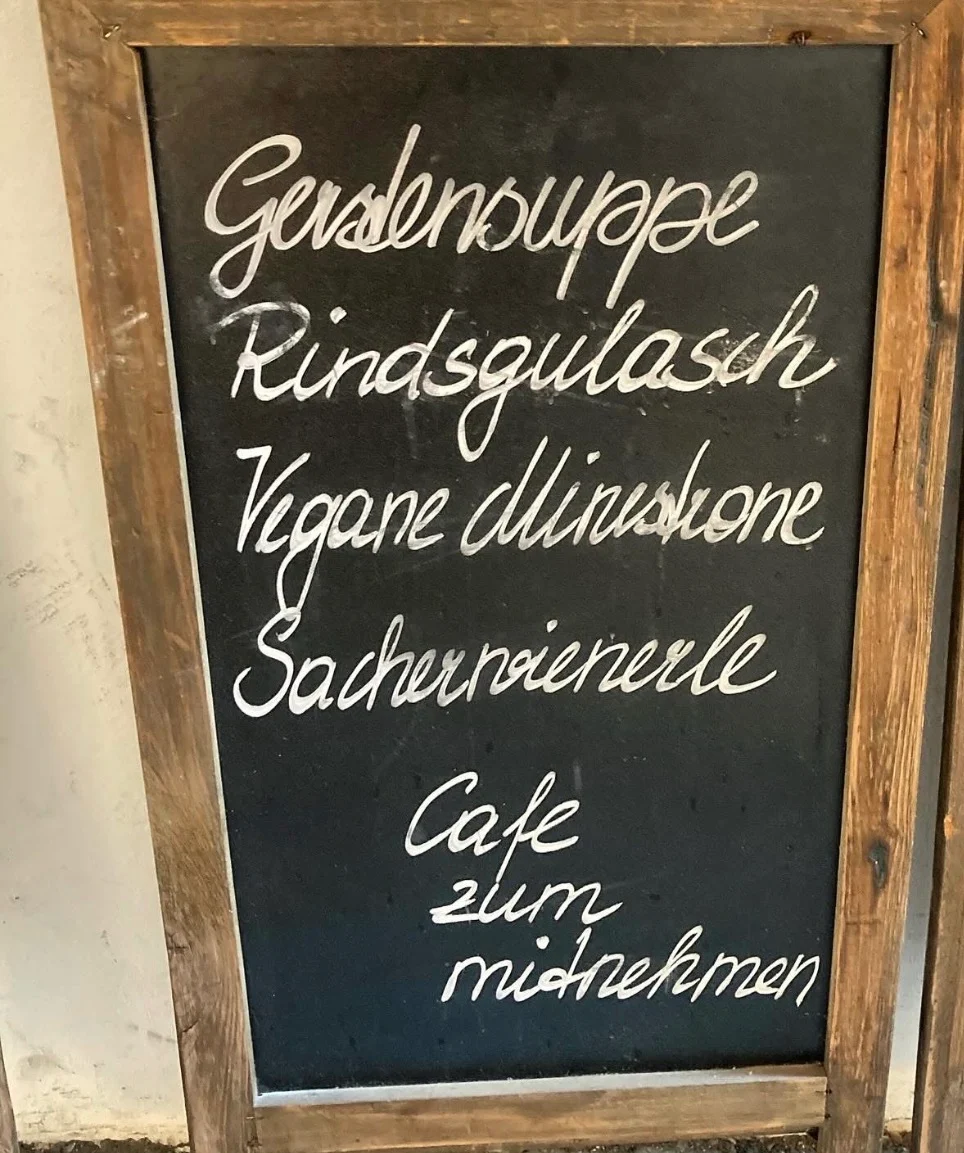 Gerstensuppe
Rindsgulasch
Vegane Minestrone
Sacherwienerle
Cafe
zum
mitnehmen